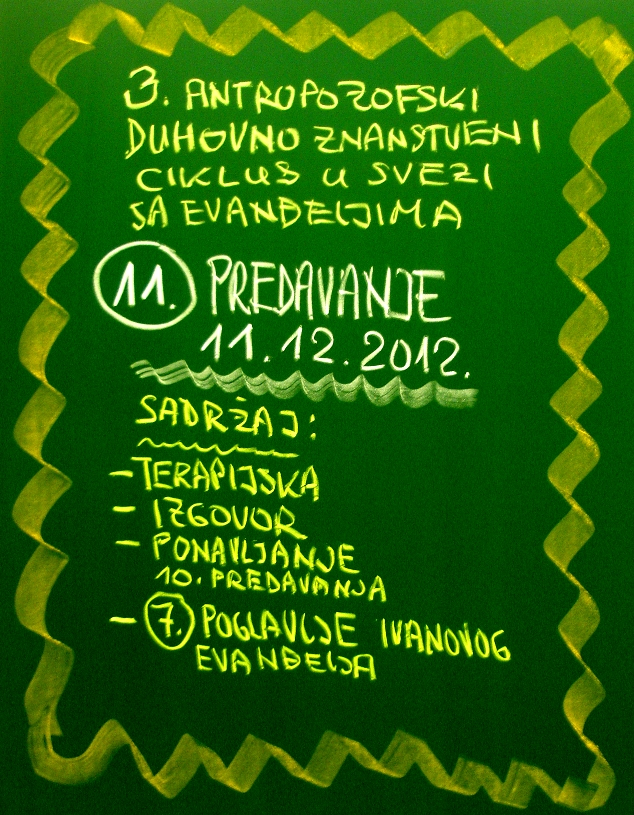 3. ANTROPOZOFSKI
DUHOVNO ZNANSTVENI
CIKLUS U SVEZI
SA EVANĐELJIMA
11. PREDAVANJE
11.12.2012.
SADRŽAJ:
- TERAPIJSKA
- IZGOVOR
- PONAVLJANJE
10. PREDAVANJA
- 7. POGLAVLJE IVANOVOG
EVANĐELJA